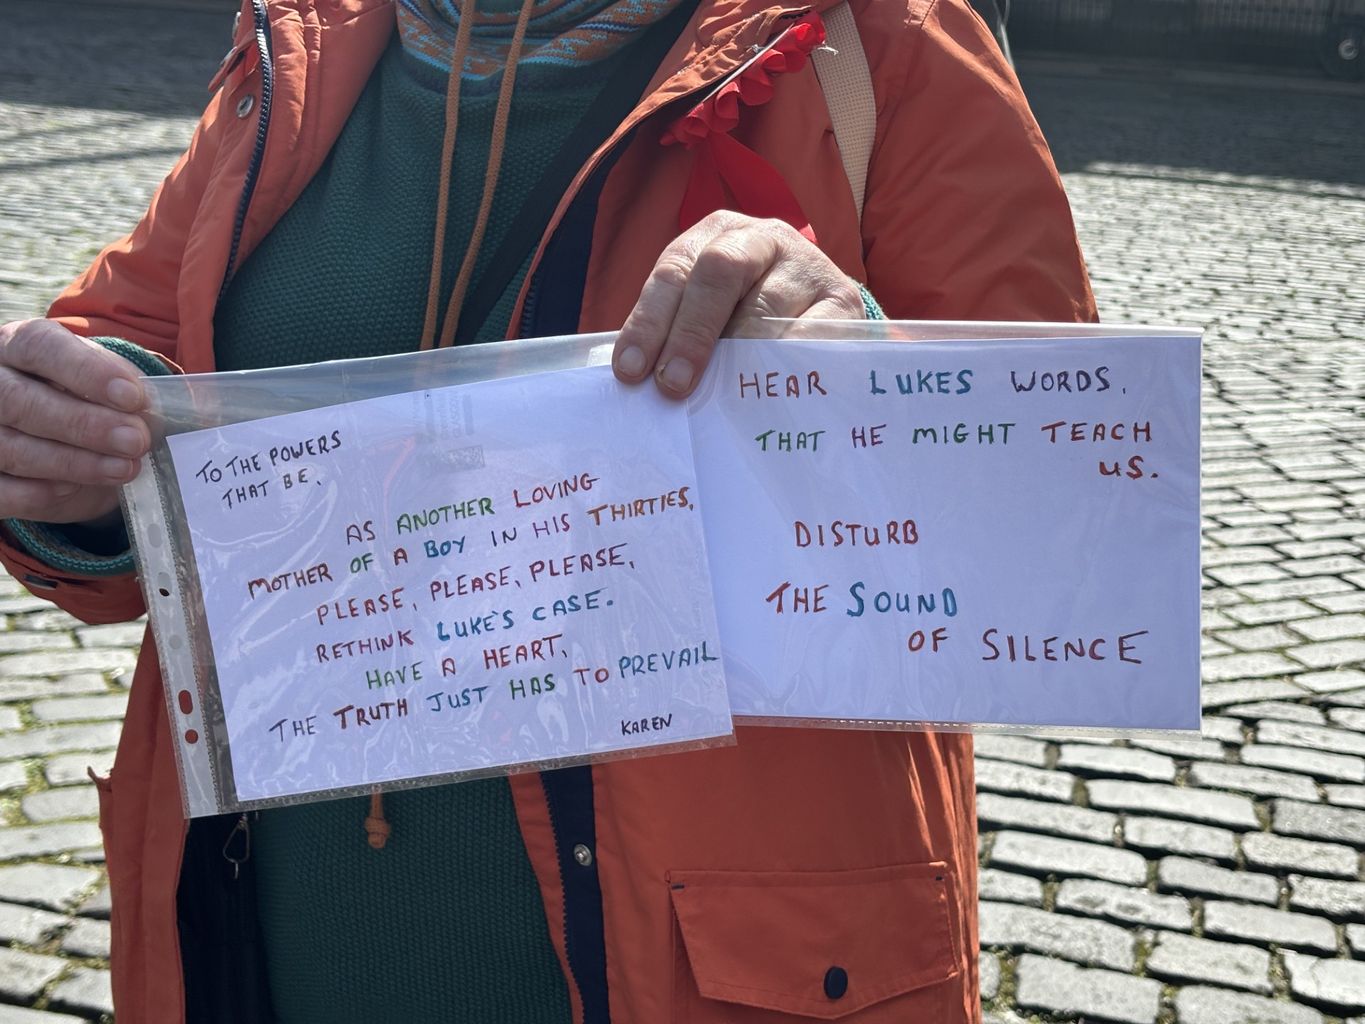 TO THE POWERS
THAT BE.
AS ANOTHER LOVING
MOTHER OF A BOY IN HIS THIRTIES,
PLEASE, PLEASE, PLEASE,
RETHINK LUKE'S CASE.
HAVE A HEART,
THE TRUTH JUST HAS TO PREVAIL
KAREN
HEAR LUKES WORDS,
THAT HE MIGHT TEACH
US.
DISTURB
THE SOUND
OF SILENCE